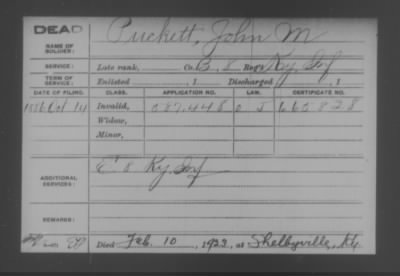 DEAD
NAME OF SOLDIER: Puckett, John M
SERVICE: Late rank, Co. B, 8 Reg't Ky Inf
TERM OF SERVICE: Enlisted , 1 Discharged , 1
DATE OF FILING. CLASS. APPLICATION NO. LAW. CERTIFICATE NO.
1886 Oct 14 Invalid, 587.448 665.828
Widow,
Minor,
ADDITIONAL SERVICES: E 8 Ky. Inf
REMARKS:
Died Feb. 10, 1922, at Shelbyville, Ky.